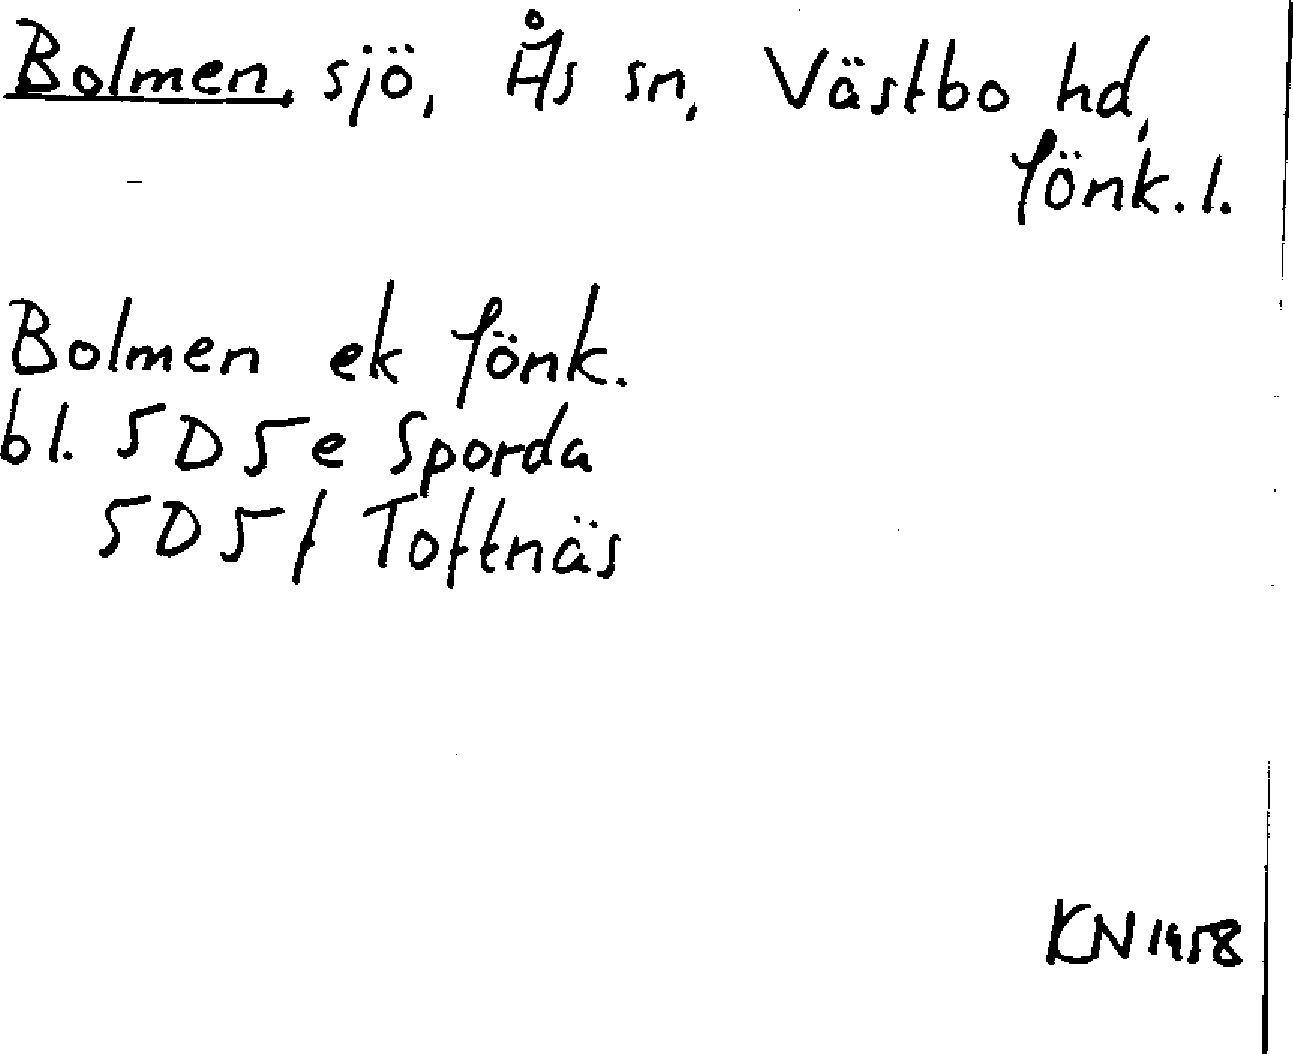 Bolmen, sjö, Ås sn, Västbo hd,
Jönk. l.
Bolmen ek Jönk.
bl. 5D5e Sporda
5D5f Toftnäs
KN 1958